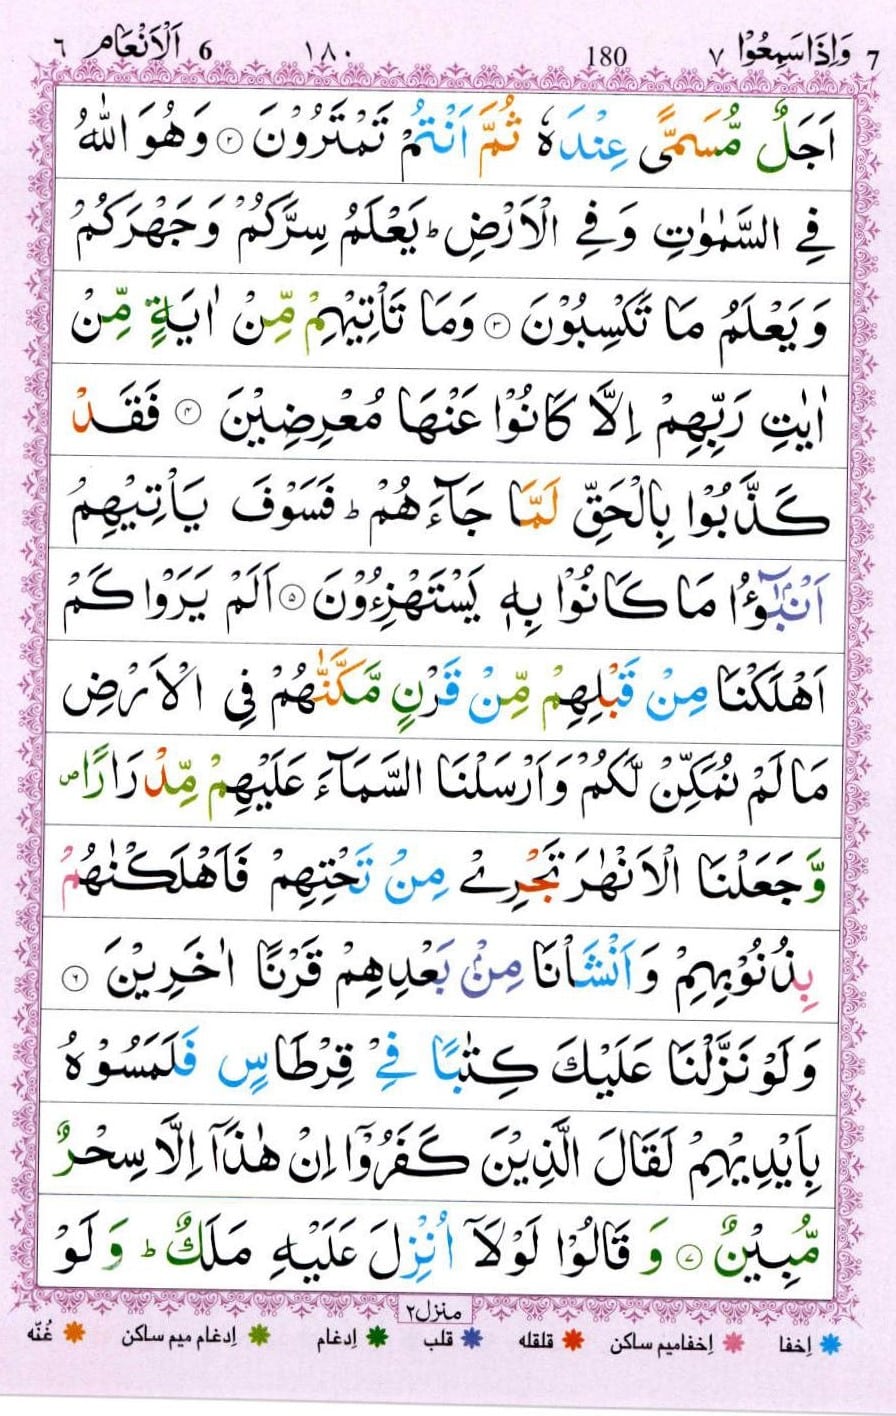 7 وَاِذَا سَمِعُوْا ٧ 180 ١٨٠ 6 اَلْاَنْعَام ٦
اَجَلٌ مُّسَمًّى عِنْدَهٗ ثُمَّ اَنْتُمْ تَمْتَرُوْنَ ۝٢ وَهُوَ اللّٰهُ
فِي السَّمٰوٰتِ وَفِي الْاَرْضِ ؕ يَعْلَمُ سِرَّكُمْ وَجَهْرَكُمْ
وَيَعْلَمُ مَا تَكْسِبُوْنَ ۝٣ وَمَا تَاْتِيْهِمْ مِّنْ اٰيَةٍ مِّنْ
اٰيٰتِ رَبِّهِمْ اِلَّا كَانُوْا عَنْهَا مُعْرِضِيْنَ ۝٤ فَقَدْ
كَذَّبُوْا بِالْحَقِّ لَمَّا جَآءَهُمْ ؕ فَسَوْفَ يَاْتِيْهِمْ
اَنْۢبٰٓؤُا مَا كَانُوْا بِهٖ يَسْتَهْزِءُوْنَ ۝٥ اَلَمْ يَرَوْا كَمْ
اَهْلَكْنَا مِنْ قَبْلِهِمْ مِّنْ قَرْنٍ مَّكَّنّٰهُمْ فِي الْاَرْضِ
مَا لَمْ نُمَكِّنْ لَّكُمْ وَاَرْسَلْنَا السَّمَآءَ عَلَيْهِمْ مِّدْرَارًا ص
وَّجَعَلْنَا الْاَنْهٰرَ تَجْرِيْ مِنْ تَحْتِهِمْ فَاَهْلَكْنٰهُمْ
بِذُنُوْبِهِمْ وَاَنْشَاْنَا مِنْۢ بَعْدِهِمْ قَرْنًا اٰخَرِيْنَ ۝٦
وَلَوْ نَزَّلْنَا عَلَيْكَ كِتٰبًا فِيْ قِرْطَاسٍ فَلَمَسُوْهُ
بِاَيْدِيْهِمْ لَقَالَ الَّذِيْنَ كَفَرُوْۤا اِنْ هٰذَاۤ اِلَّا سِحْرٌ
مُّبِيْنٌ ۝٧ وَقَالُوْا لَوْلَاۤ اُنْزِلَ عَلَيْهِ مَلَكٌ ؕ وَلَوْ
منزل٢
اِخفا اِخفامیم ساکن قلقله قلب اِدغام اِدغام میم ساکن غُنّه